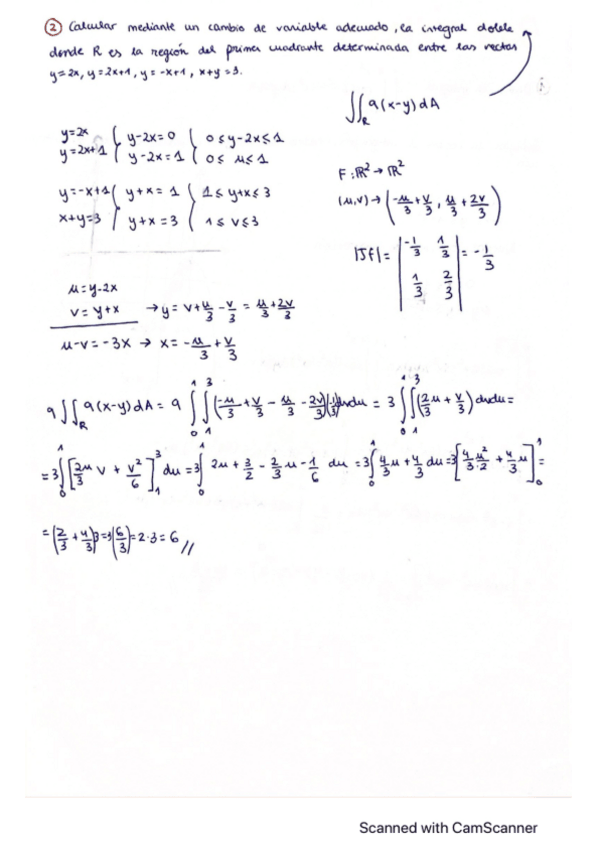 ② Calcular mediante un cambio de variable adecuado, la integral doble
donde R es la región del primer cuadrante determinada entre las rectas
y=2x, y=2x+1, y=-x+1, x+y=3.
∬_R 9(x-y)dA
y=2x { y-2x=0 { 0≤y-2x≤1
y=2x+1 { y-2x=1 { 0≤ u≤1
F:ℝ²→ℝ²
y=-x+1 { y+x=1 { 1≤y+x≤3
(u,v)→(-u/3+v/3, u/3+2v/3)
x+y=3 { y+x=3 { 1≤v≤3
|Jf|= |-1/3 1/3; 1/3 2/3| = -1/3
u=y-2x
v=y+x →y= v+u/3-v/3= u+2v/3
u-v=-3x → x= -u/3+v/3
9∬_R 9(x-y)dA= 9 ∫_0^1 ∫_1^3 (-u/3+v/3-u/3-2v/3)(1/3)dvdu = 3 ∫_0^1 ∫_1^3 (2/3 u+v/3)dvdu=
=3∫_0^1 [2/3 u v + v²/6]_1^3 du =3∫_0^1 2u+3/2-2/3 u-1/6 du =3∫_0^1 4/3 u+4/3 du=3[4/3 u²/2 + 4/3 u]_0^1=
=(2/3+4/3)3=3(6/3)=2·3=6 //
Scanned with CamScanner